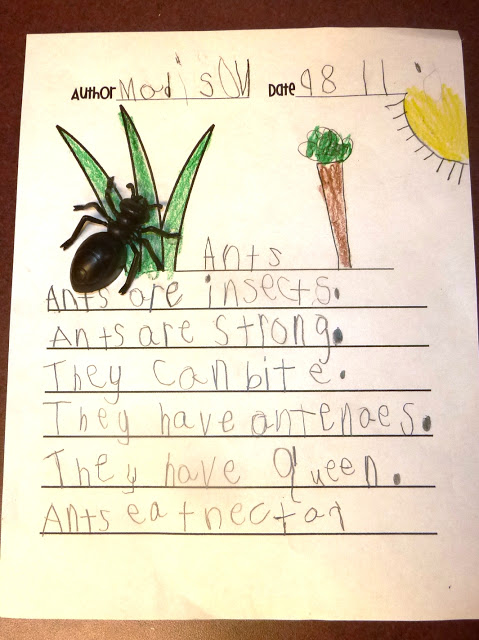 Author Madison Date 98 11
Ants
Ants are insects.
Ants are strong.
They can bite.
They have antenaes.
They have queen.
Ants eat nectar